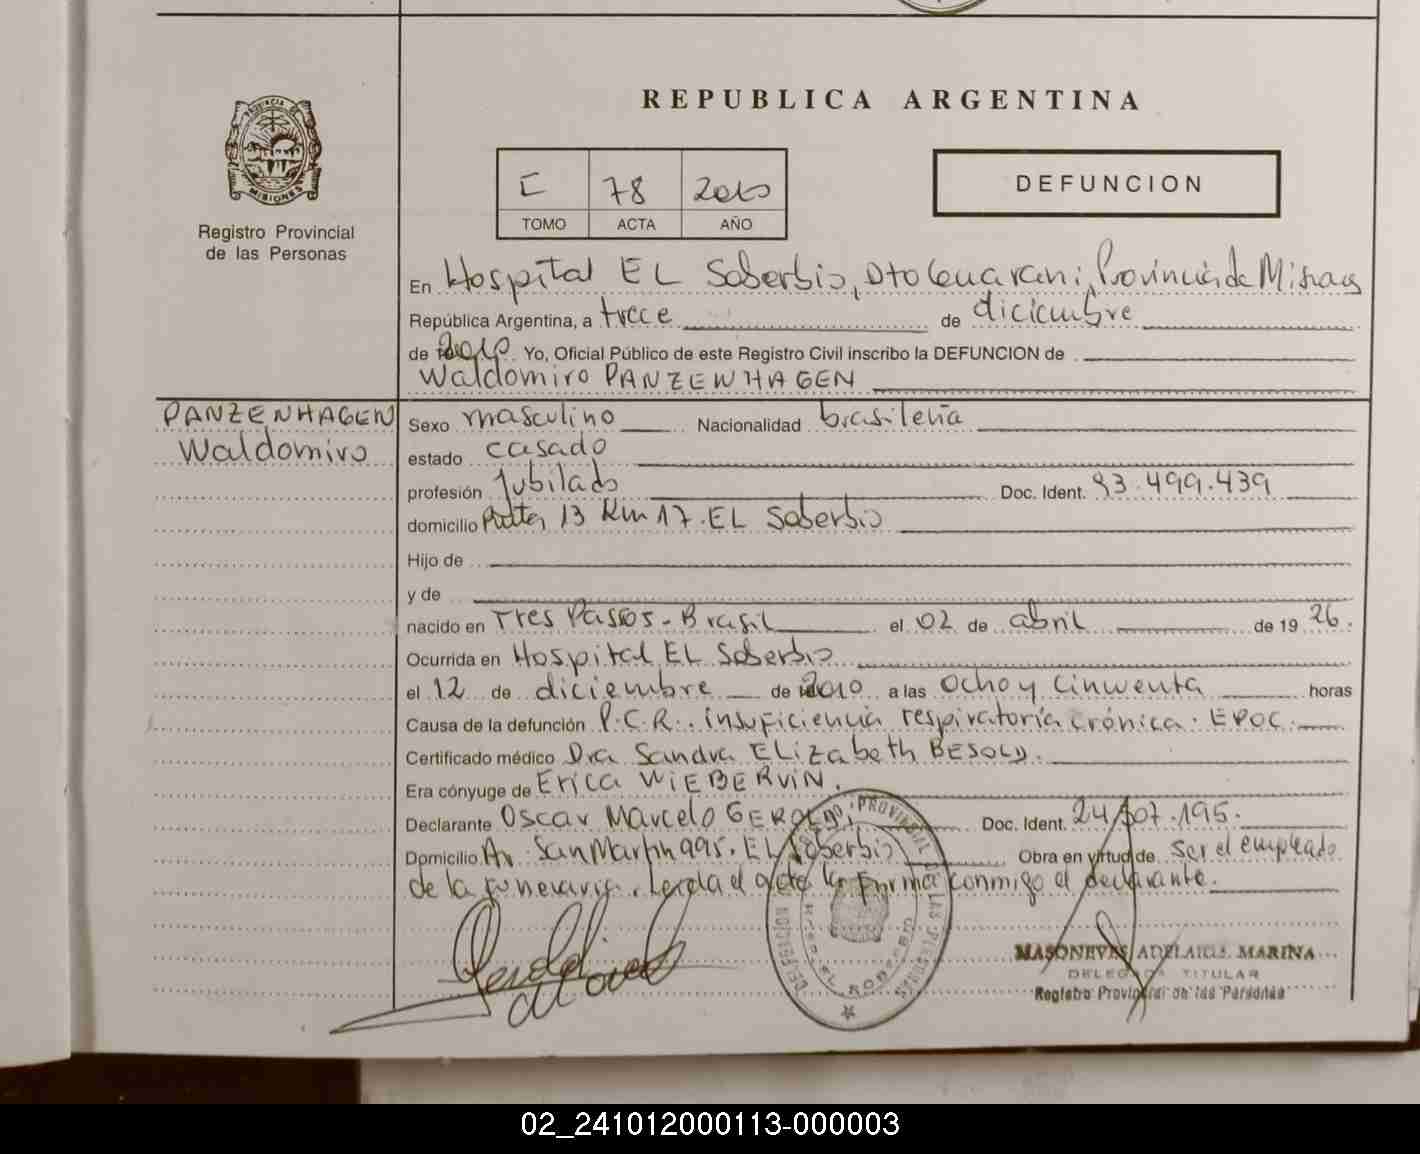 REPUBLICA ARGENTINA
PROVINCIA DE MISIONES
Registro Provincial
de las Personas
I 78 2010
TOMO ACTA AÑO
DEFUNCION
En Hospital EL Soberbio, Dto Guarani, Provincia de Misiones
República Argentina, a trece de diciembre
de 2010. Yo, Oficial Público de este Registro Civil inscribo la DEFUNCION de
Waldomiro PANZENHAGEN
PANZENHAGEN
Waldomiro
Sexo masculino Nacionalidad brasileña
estado casado
profesión Jubilado Doc. Ident. 93.499.439
domicilio 13 Km 17. EL Soberbio
Hijo de
y de
nacido en Tres Passos - Brasil el 02 de abril de 1926.
Ocurrida en Hospital EL Soberbio
el 12 de diciembre de 2010 a las ocho y cincuenta horas
Causa de la defunción P.C.R.. insuficiencia respiratoria crónica. EPOC.
Certificado médico Dra Sandra ELizabeth BESOLD.
Era cónyuge de Erica WIEBERVIN.
Declarante Oscar Marcelo GEROLDI, Doc. Ident. 24.507.195.
Domicilio Av. San Martin 995. EL Soberbio Obra en virtud de ser el empleado
de la funeraria. Leida el acta la firma conmigo el declarante.
MASONEVES ADELAIDE MARINA
DELEGADA TITULAR
Registro Provincial de las Personas
02_241012000113-000003